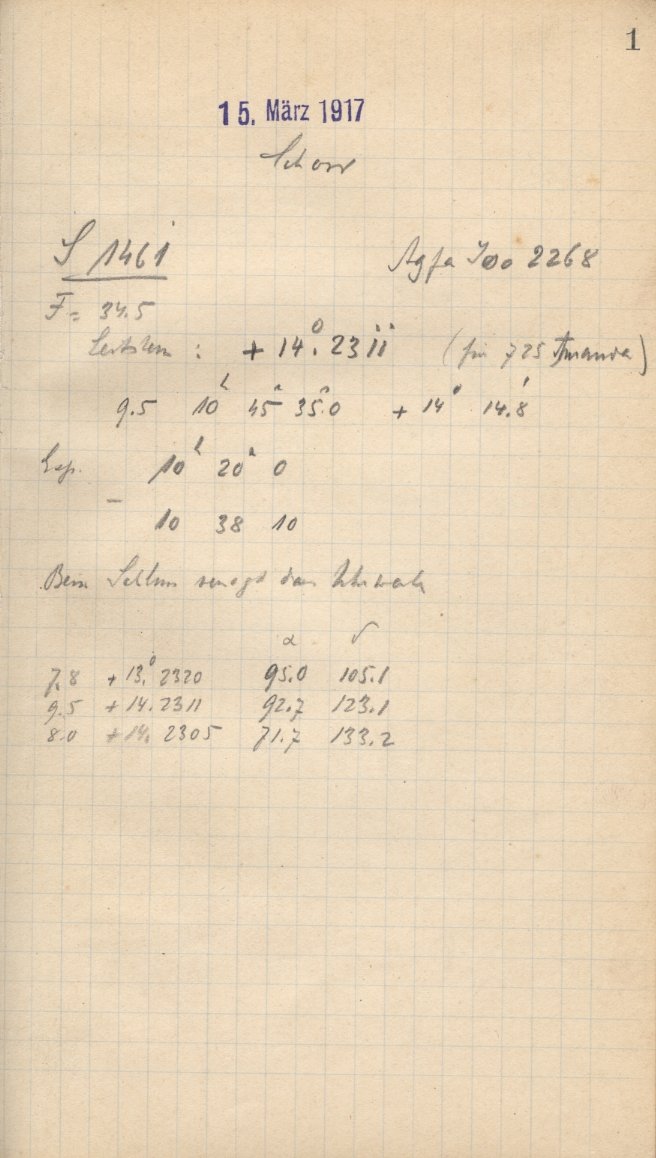 1
15. März 1917
Schorr
S 1461
Agfa Iso 2268
F = 34.5
Leitstern : + 14°. 2311 (für 725 Amanda)
9.5 10ʰ 45ᵐ 35ˢ.0 + 14° 14.'8
Exp. 10ʰ 20ᵐ 0
– 10 38 10
Beim Schluss versagt das Uhrwerk
α δ
7.8 + 13.° 2320 95.0 105.1
9.5 + 14. 2311 92.7 123.1
8.0 + 14. 2305 71.7 133.2